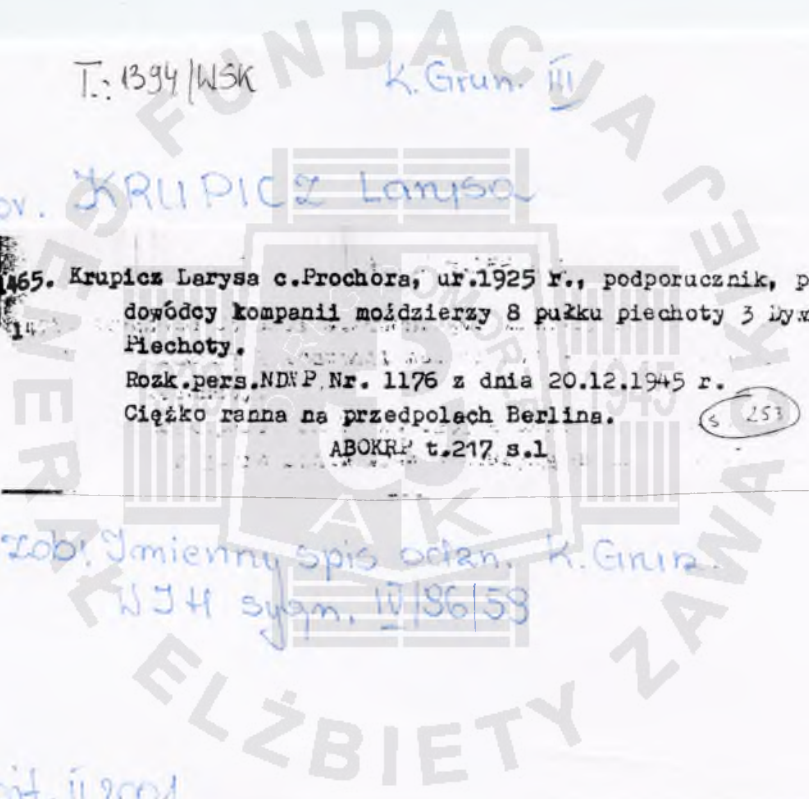 T.: 1394/WSK
K. Grun. III
KRUPICZ Larysa
1465. Krupicz Larysa c.Prochora, ur.1925 r., podporucznik, p
dowódcy kompanii moździerzy 8 pułku piechoty 3 Dyw
Piechoty.
Rozk.pers.NDWP Nr. 1176 z dnia 20.12.1945 r.
Ciężko ranna na przedpolach Berlina.
s 253
ABOKRP t.217 s.1
zob! Imienny spis odzn. K. Grun.
WIH sygn. IV/96/59
II 2001
FUNDACJA GENERAŁ ELŻBIETY ZAWACKIEJ
POMORZE
1945
AK